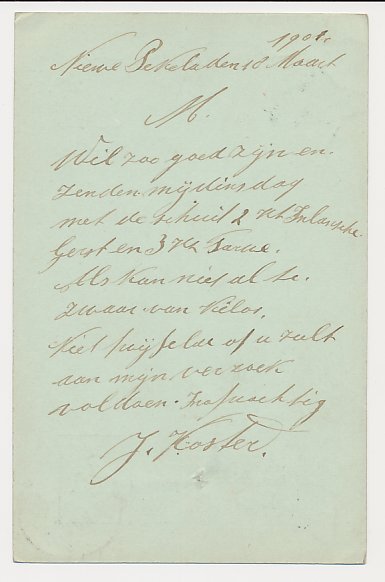 1901.
Niewe Pekela den 18 Maart
M.
Wil zoo goed zijn en
zenden mij dinsdag
met de schuit 2 Kt Inlansche
Gerst en 3 Kt Tarwe.
Als kan niet al te
zwaar van kilos.
Niet twijfelde of u zult
aan mijn verzoek
voldoen. Hoogachtig
J. Koster.